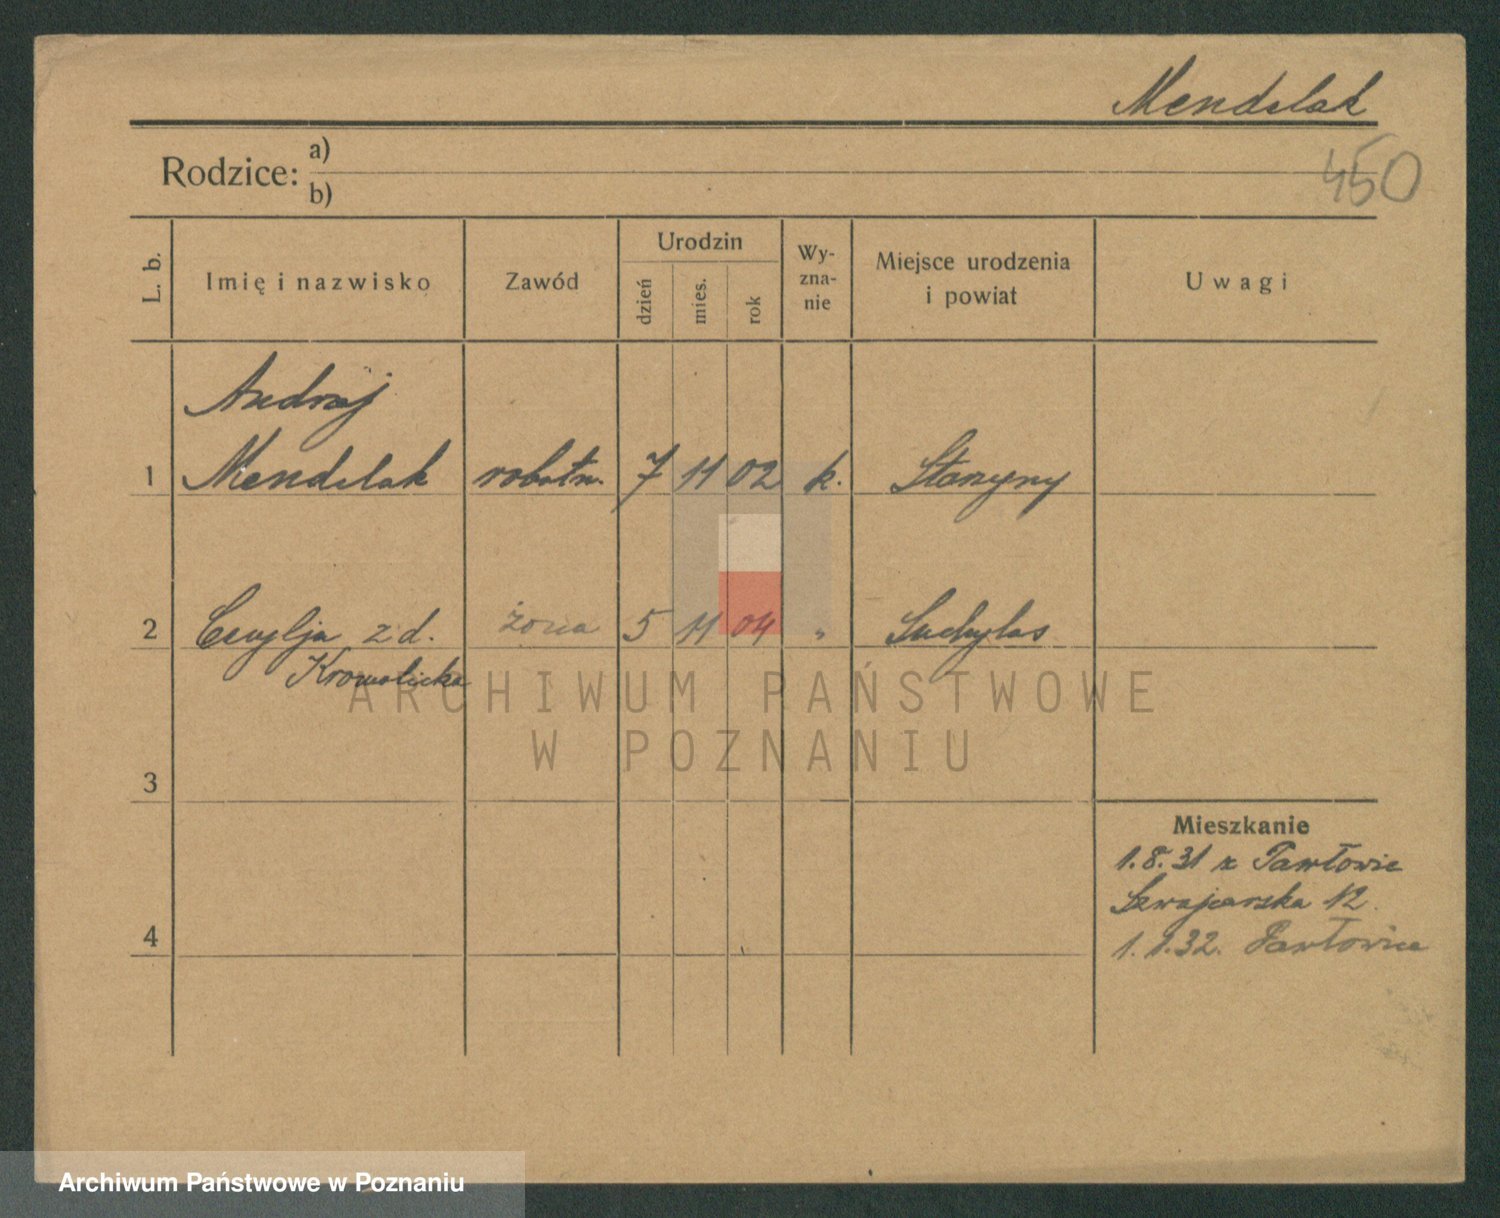 Mendelak
450
Rodzice: a)
b)
L. b.
Imię i nazwisko
Zawód
Urodzin
dzień
mies.
rok
Wy-
zna-
nie
Miejsce urodzenia
i powiat
Uwagi
Andrzej
1 Mendelak robotn. 7 11 02 k.
2 Cecylja z d. żona 5 11 04 " Suchylas
Krowalicka
ARCHIWUM PAŃSTWOWE
W POZNANIU
3
Mieszkanie
1.8.31 z Pawłowic
Szwajcarska 12.
4
1.1.32. Pawłowice
Archiwum Państwowe w Poznaniu